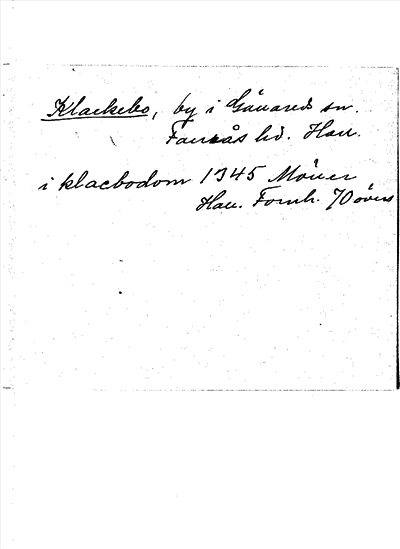 Klackebo, by i Gällared sn.
Faurås hd. Hall.
i klacbodom 1345 Möller
Hall. Fornh. 70 övers